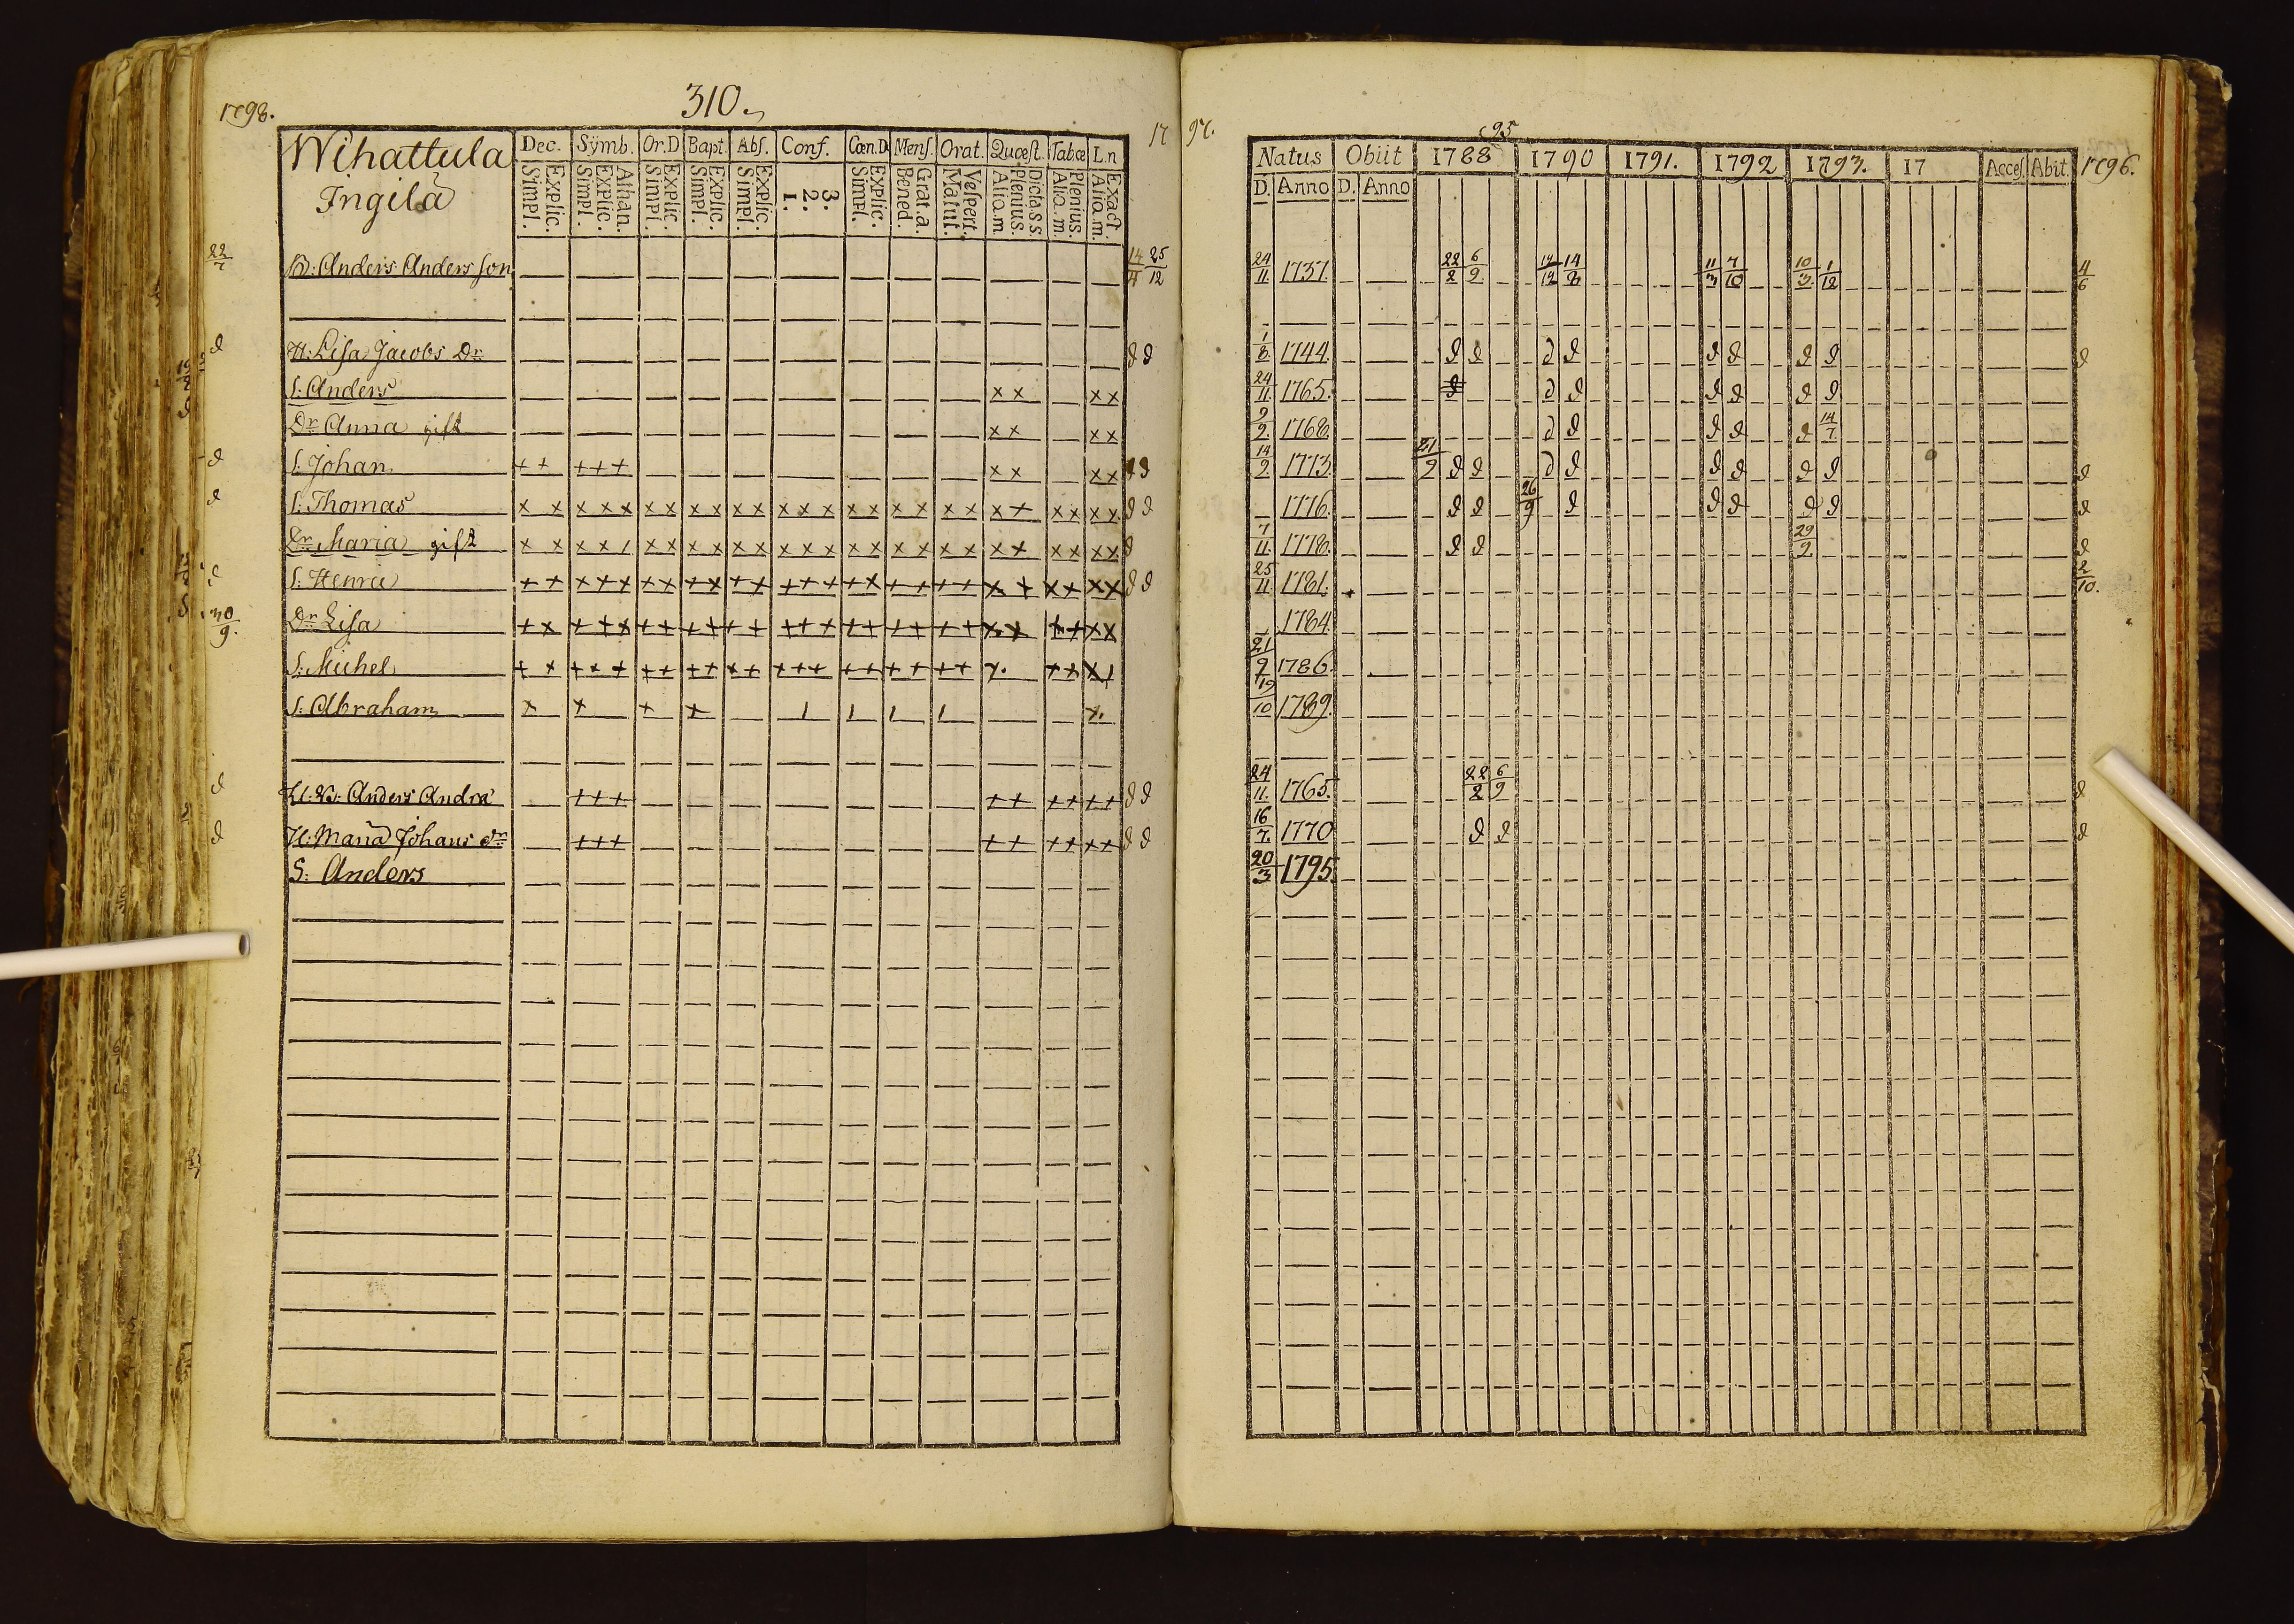 310.
1798.
Wihattula
Ingilä
Dec. Symb. Or.D Bapt. Abs. Conf. Cœn.D Mens. Orat. Quæst. Tabœ L.n
Explic. Simpl. Athan. Explic. Simpl. Explic. Simpl. Explic. Simpl. Explic. Simpl. 3. 2. 1. Explic. Simpl. Grat.a. Bened. Vespert. Matut. Dicta s.s. Plenius. Aliq.m Plenius. Aliq.m. Exact. Aliq.m.
22/7 B: Anders Andersson 14/4 25/12
d H: Lisa Jacobs Dr d d
S: Anders x x x x
Dr Anna gift x x x x
d S: Johan + + + + + x x x x d d
d S: Thomas x x x x x x x x x x x x x x x x x x x x x x + x x x x d d
Dr Maria gift x x x x / x x x x x x x x x x x x x x x x x x x x x x d
d S: Henric + + + x x x x + x + x + + x + x + + + + x + x + x x d d
30/9. Dr Lisa + x + + x + + + + + + + + x + + + + + + x x + + x x
S: Michel + x + x + + + + + x + + + + + + + + + + x. + x x /
S: Abraham x x + x / / / / x.
d U: B: Anders Andrs + + + + + + + + + d d
d H: Maria Johans dr + + + + + + + + + d d
S: Anders
17 97.
95
Natus Obiit 1788 1790 1791. 1792 1793. 17 Acces. Abit. 1796.
D. Anno D. Anno
24/11. 1737. 22/2 6/9 14/12 14/8 11/3 7/10 10/3 1/12 4/6
1/8. 1744. d d d d d d d d d
24/11. 1765. d d d d d d d
9/2. 1768. d d d d d 14/7
14/2. 1773. 21/9 d d d d d d d d d
1776. d d 26/9 d d d d d d
7/11. 1778. d d 29/9 d
25/11. 1781. 2/10.
1784.
21/9 1786.
19/10 1789.
24/11. 1765. 22/2 6/9 d
16/7. 1770 d d d
20/3 1795.